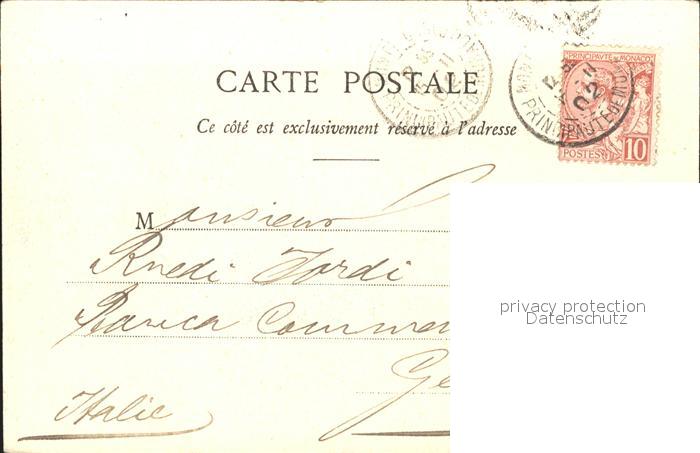 PRINCIPAUTÉ DE MONACO
POSTES 10
PRINCIPAUTÉ DE MON
11
02
CARTE POSTALE
Ce côté est exclusivement réservé à l'adresse
Monsieur
Ruedi
Banca Commer
Ge
Italie
privacy protection
Datenschutz